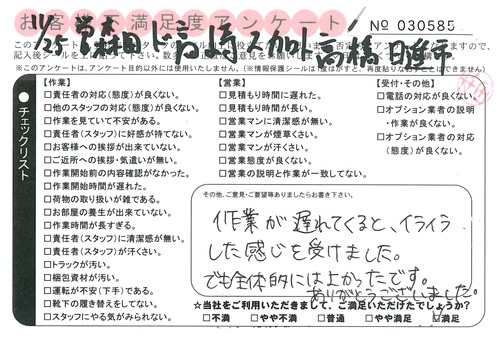 お客様不満足度アンケート
№ 030585
11/25 営 森田 ド 高崎 スカ外 高橋 日
記入後シールを
※このアンケートは、アンケート目的以外には使用いたしません。(※情報保護シールは1度はがすと、再度貼りなおすことはできません)
チェックリスト
【作業】
□責任者の対応(態度)が良くない。
□他のスタッフの対応(態度)が良くない。
□作業を見ていて不安がある。
□責任者(スタッフ)に好感が持てない。
□お客様への挨拶が出来ていない。
□ご近所への挨拶・気遣いが無い。
□作業開始前の内容確認がなかった。
□作業開始時間が遅れた。
□荷物の取り扱いが雑である。
□お部屋の養生が出来ていない。
□作業時間が長すぎる。
□責任者(スタッフ)に清潔感が無い。
□責任者(スタッフ)が汗くさい。
□トラックが汚い。
□梱包資材が汚い。
□運転が不安(下手)である。
□靴下の履き替えをしてない。
□スタッフにやる気がみられない。
【営業】
□見積もり時間に遅れた。
□見積もり時間が長い。
□営業マンに清潔感が無い。
□営業マンが煙草くさい。
□営業マンが汗くさい。
□営業態度が良くない。
□営業の説明と作業が一致してない。
【受付・その他】
□電話の対応が良くない。
□オプション業者の説明
・作業が良くない。
□オプション業者の対応
(態度)が良くない。
その他、ご意見・ご要望等ありましたらお書き下さい。
作業が遅れてくると、イライラ
した感じを受けました。
でも全体的には上かったです。
ありがとうございました。
☆当社をご利用いただきまして、ご満足いただけたでしょうか?
□不満 □やや不満 □普通 □やや満足 ☑満足